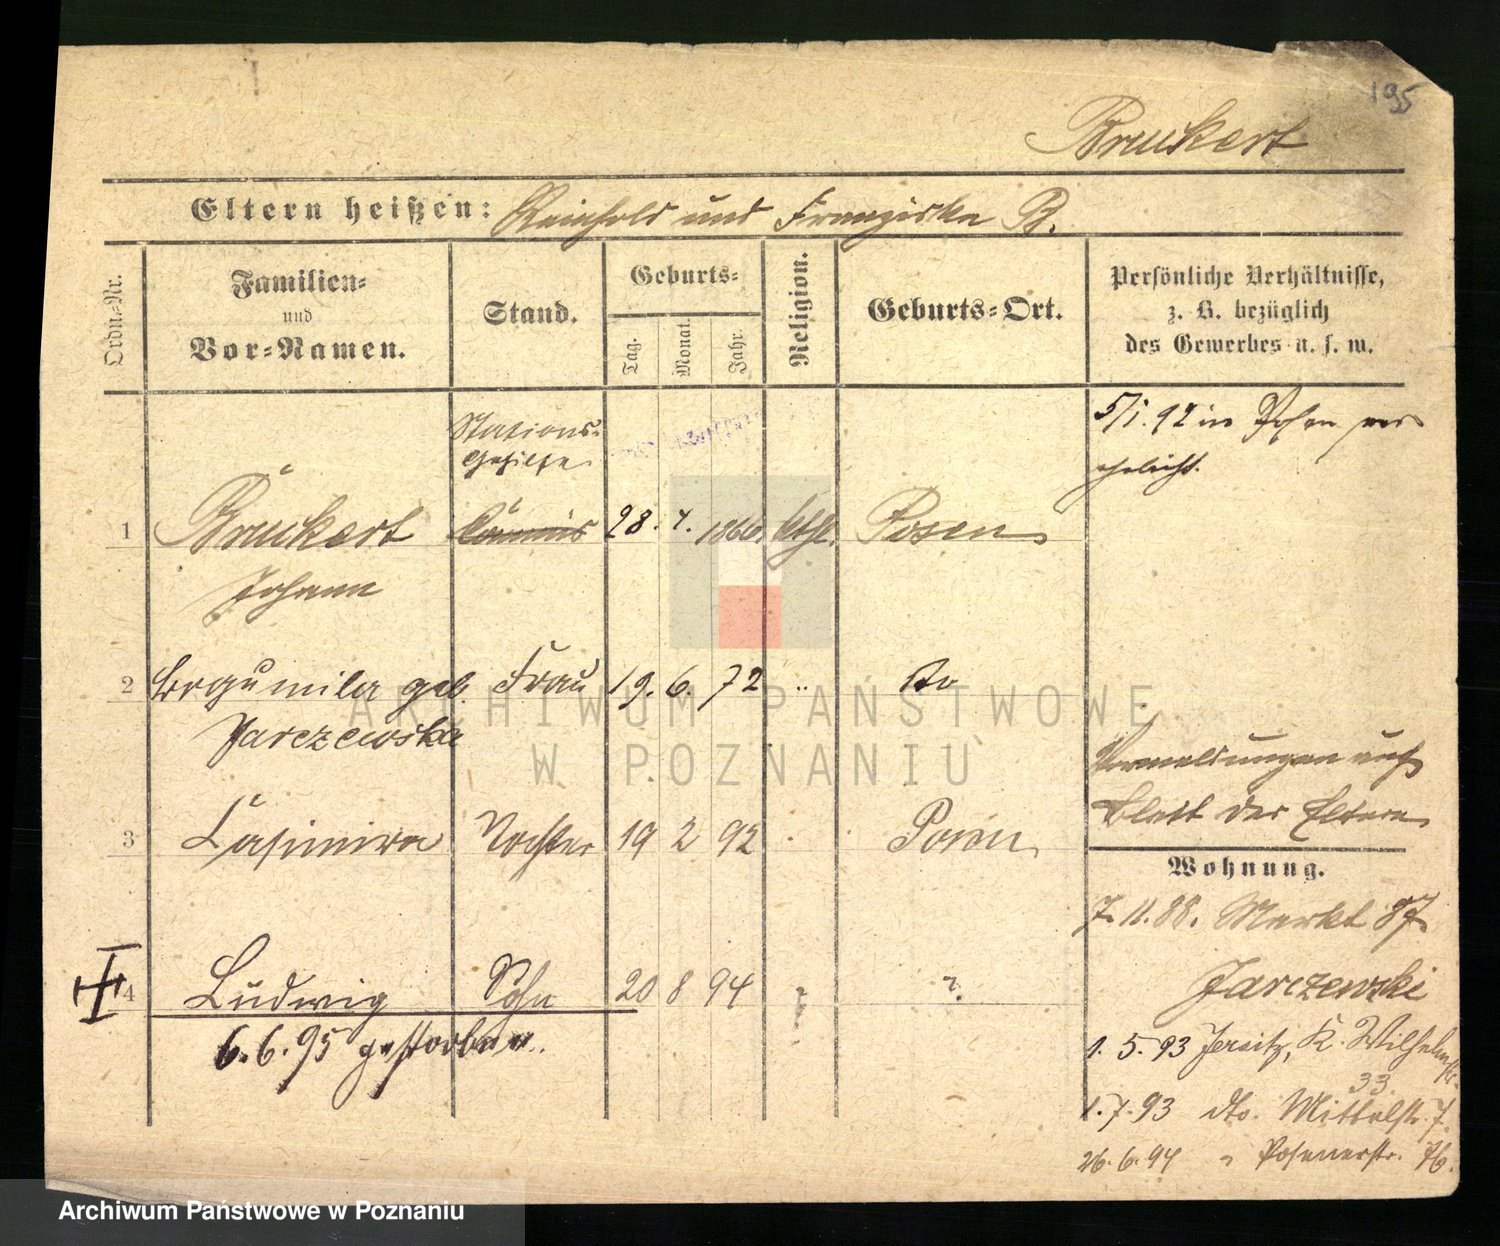 195
Bruckert
Eltern heißen: Reinhold und Franziska B.
Ordn.-Nr.
Familien-
und
Vor-Namen.
Stand.
Geburts-
Tag.
Monat.
Jahr.
Religion.
Geburts-Ort.
Persönliche Verhältnisse,
z. B. bezüglich
des Gewerbes u. s. w.
Stations-
Gehilfe
5/1. 92 in Posen ver
ehelicht.
1 Bruckert Commis 28. 7. 1866. kath. Posen
Johann
2 Bogumila geb. Frau 19. 6. 72 " do
Jarczewska
Vermeldungen auf
Blatt der Eltern
3 Casimira Tochter 19 2 92 Posen
Wohnung.
7. 11. 88. Markt 87
Jarczewski
4 Ludwig Sohn 20 8 94 ?
6.6.95 gestorben.
1. 5. 93 Jersitz, K. Wilhelmstr.
33
1. 7. 93 dto. Mittelstr. 7.
26. 6. 94 " Posenerstr.
ARCHIWUM PAŃSTWOWE
W POZNANIU
Archiwum Państwowe w Poznaniu